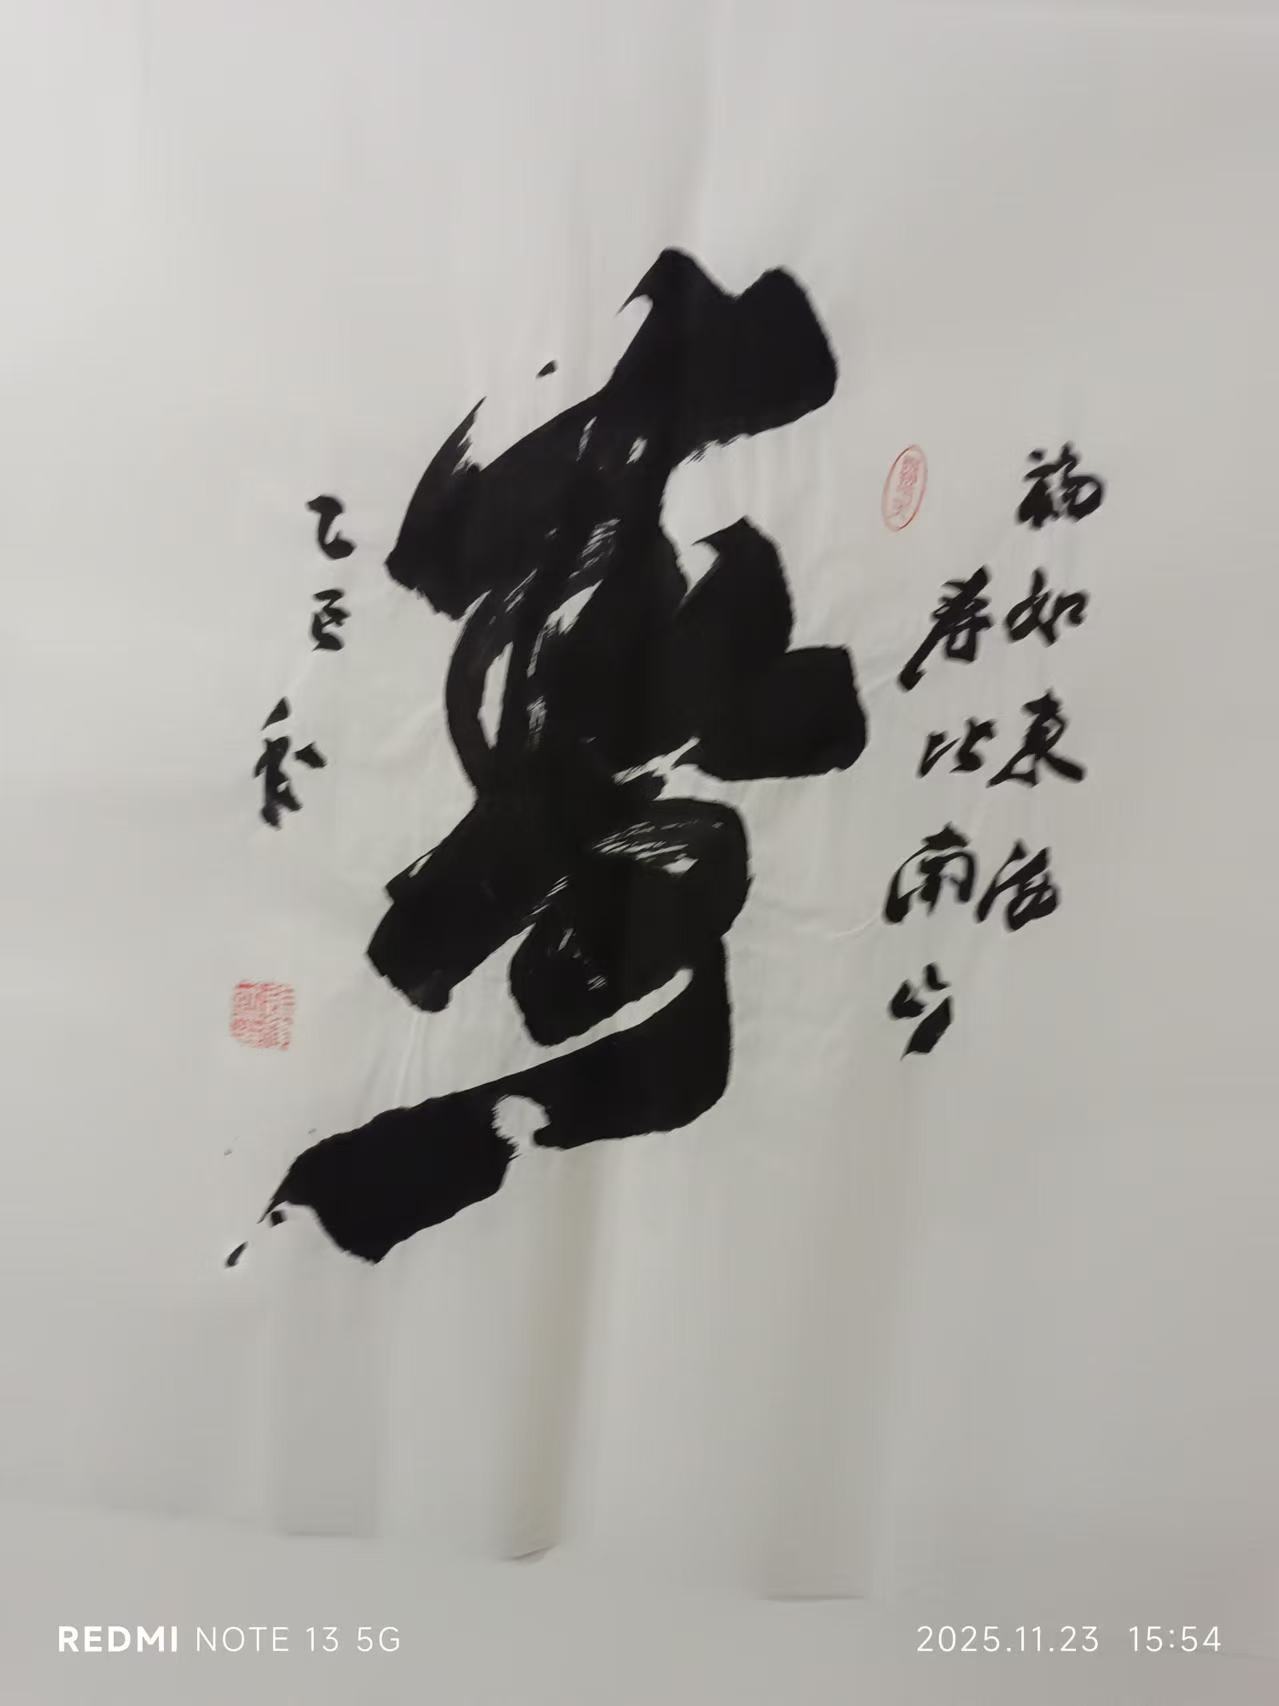 福如東海
寿比南山
壽
乙巳
REDMI NOTE 13 5G
2025.11.23 15:54